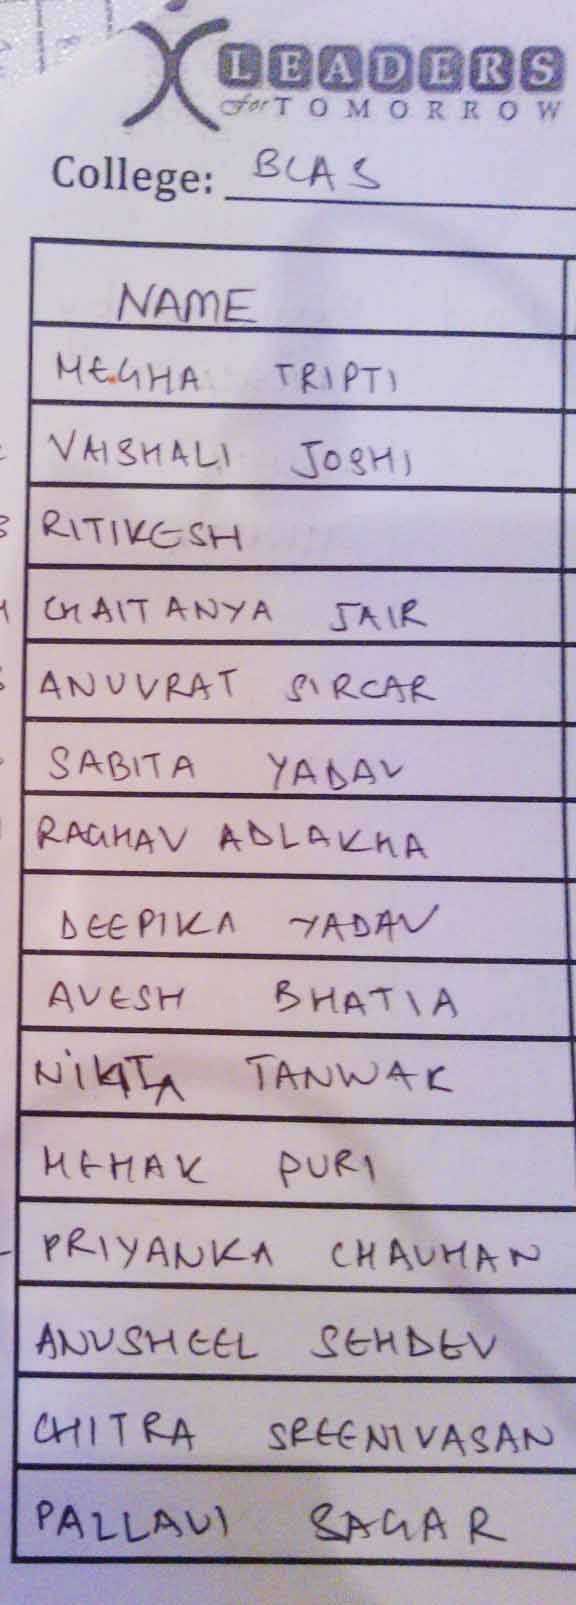 LEADERS
for TOMORROW
College: BCAS
NAME
MEGHA TRIPTI
VAISHALI JOSHI
RITIKESH
CHAITANYA JAIR
ANUVRAT SIRCAR
SABITA YADAV
RAGHAV ADLAKHA
DEEPIKA YADAV
AVESH BHATIA
NIKITA TANWAR
MEHAK PURI
PRIYANKA CHAUHAN
ANUSHEEL SEHDEV
CHITRA SREENIVASAN
PALLAVI SAGAR